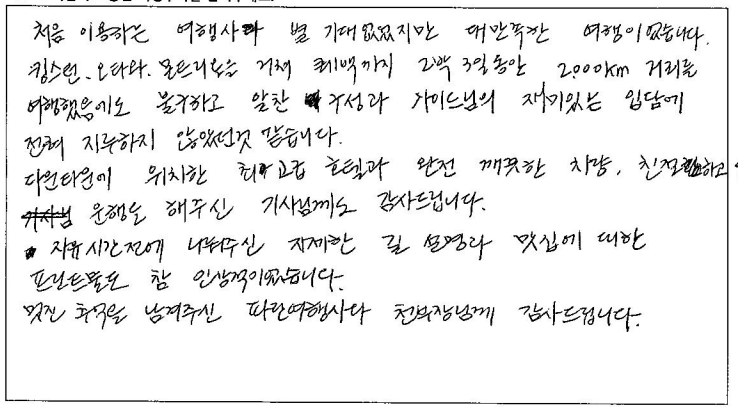 처음 이용하는 여행사라 별 기대없었지만 대만족한 여행이었습니다.
킹스턴, 오타와, 몬트리올을 거쳐 퀘백까지 2박 3일동안 2000km 거리를
여행했음에도 불구하고 알찬 구성과 가이드님의 재미있는 입담에
전혀 지루하지 않았던것 같습니다.
다운타운에 위치한 최고급 호텔과 완전 깨끗한 차량, 친절하고
기사님 운행을 해주신 기사님께도 감사드립니다.
자유시간전에 나눠주신 자세한 길 설명과 맛집에 대한
프린트물도 참 인상적이었습니다.
멋진 추억을 남겨주신 파란여행사와 천부장님께 감사드립니다.